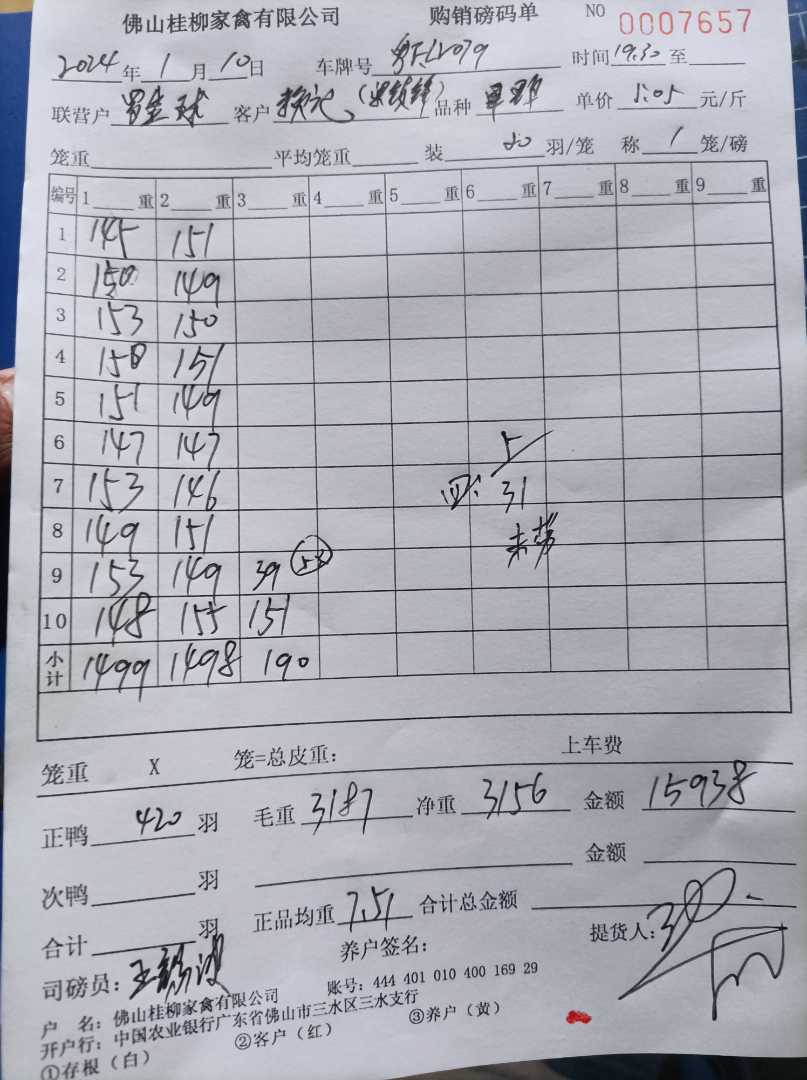 佛山桂柳家禽有限公司 购销磅码单 NO 0007657
2024年1月10日 车牌号 粤FL2079 时间19:30至
联营户 罗金球 客户 品种 单价 5.05 元/斤
笼重 平均笼重 装 20 羽/笼 称 1 笼/磅
编号 1 重 2 重 3 重 4 重 5 重 6 重 7 重 8 重 9 重
1 145 151
2 150 149
3 153 150
4 150 151
5 151 149
6 147 147 5
7 153 146 31
8 149 151
9 153 149 39
10 148 155 151
小计 1499 1498 190
笼重 X 笼=总皮重: 上车费
正鸭 420 羽 毛重 3187 净重 3156 金额 15938
次鸭 羽 金额
合计 羽 正品均重 7.51 合计总金额
司磅员: 养户签名: 提货人:
户 名: 佛山桂柳家禽有限公司 账号: 444 401 010 400 169 29
开户行: 中国农业银行广东省佛山市三水区三水支行
①存根(白) ②客户(红) ③养户(黄)